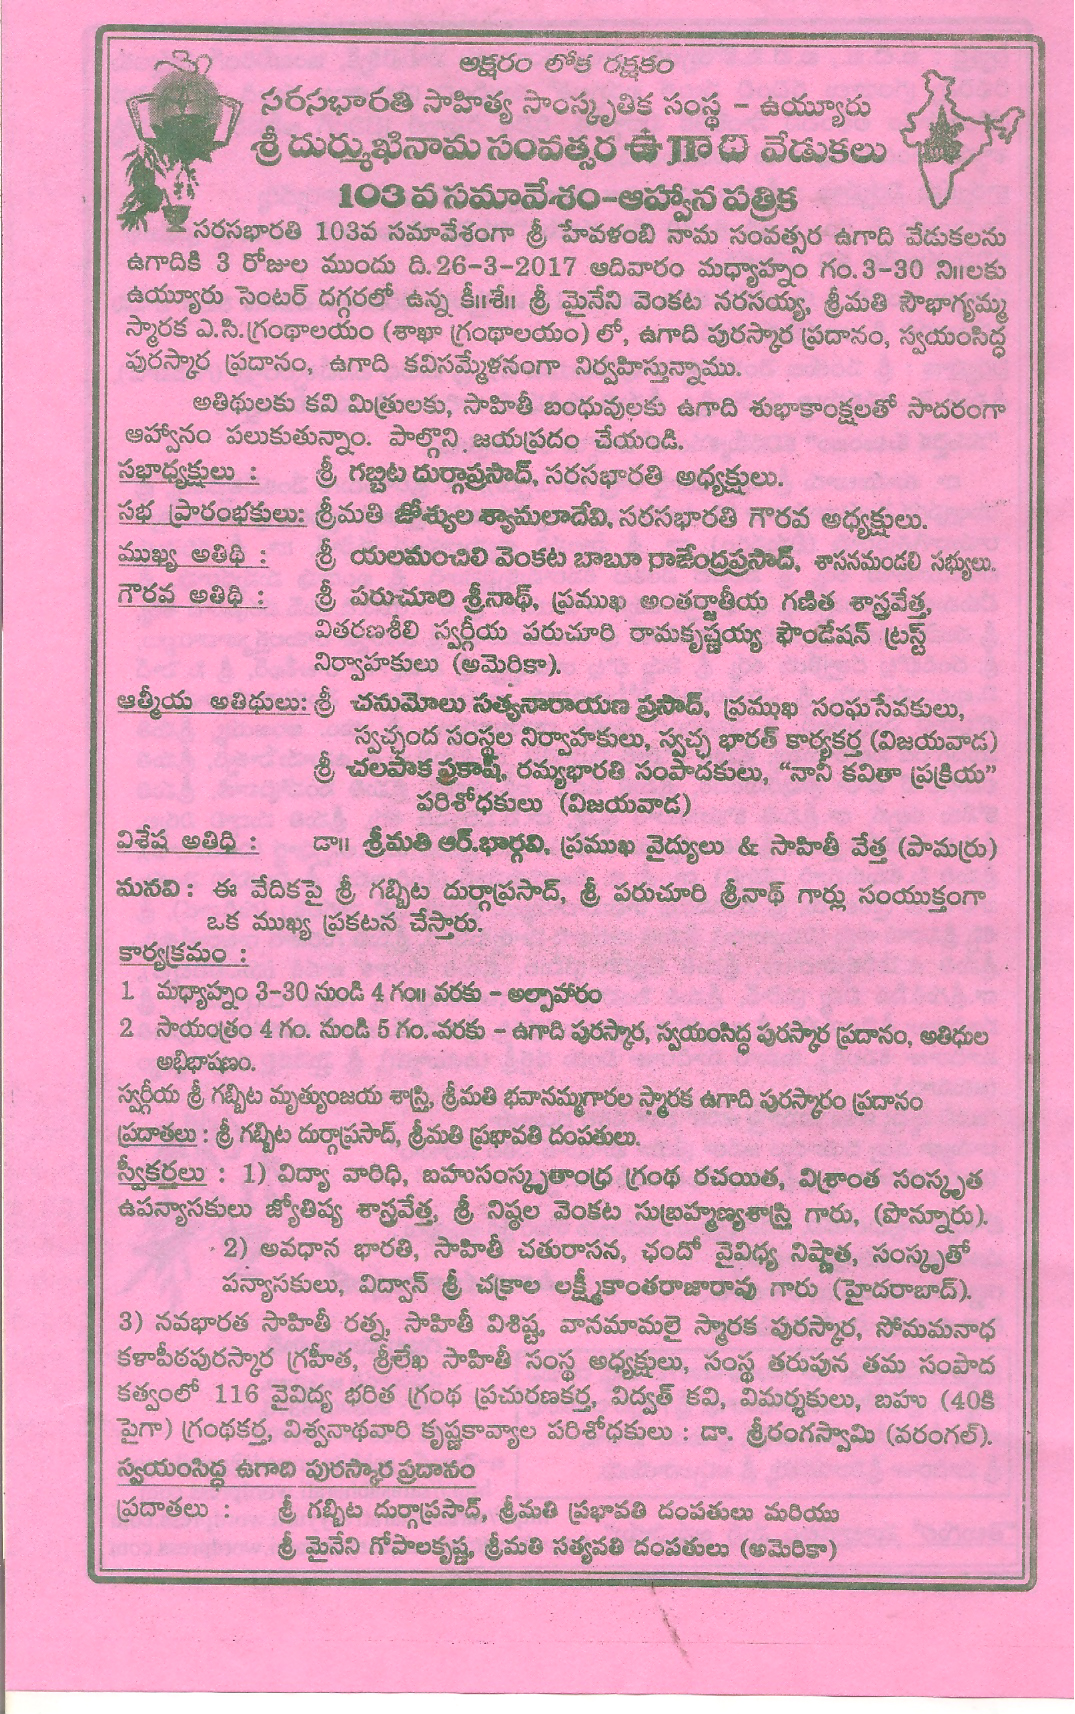 అక్షరం లోక రక్షకం
సరసభారతి సాహిత్య సాంస్కృతిక సంస్థ - ఉయ్యూరు
శ్రీ దుర్ముఖినామ సంవత్సర ఉగాది వేడుకలు
103 వ సమావేశం-ఆహ్వాన పత్రిక
సరసభారతి 103వ సమావేశంగా శ్రీ హేవళంబి నామ సంవత్సర ఉగాది వేడుకలను
ఉగాదికి 3 రోజుల ముందు ది.26-3-2017 ఆదివారం మధ్యాహ్నం గం.3-30 ని॥లకు
ఉయ్యూరు సెంటర్ దగ్గరలో ఉన్న కీ॥శే॥ శ్రీ మైనేని వెంకట నరసయ్య, శ్రీమతి సౌభాగ్యమ్మ
స్మారక ఎ.సి.గ్రంథాలయం (శాఖా గ్రంథాలయం) లో, ఉగాది పురస్కార ప్రదానం, స్వయంసిద్ధ
పురస్కార ప్రదానం, ఉగాది కవిసమ్మేళనంగా నిర్వహిస్తున్నాము.
అతిథులకు కవి మిత్రులకు, సాహితీ బంధువులకు ఉగాది శుభాకాంక్షలతో సాదరంగా
ఆహ్వానం పలుకుతున్నాం. పాల్గొని జయప్రదం చేయండి.
సభాధ్యక్షులు : శ్రీ గబ్బిట దుర్గాప్రసాద్, సరసభారతి అధ్యక్షులు.
సభ ప్రారంభకులు: శ్రీమతి జోశ్యుల శ్యామలాదేవి, సరసభారతి గౌరవ అధ్యక్షులు.
ముఖ్య అతిథి : శ్రీ యలమంచిలి వెంకట బాబూ రాజేంద్రప్రసాద్, శాసనమండలి సభ్యులు.
గౌరవ అతిథి : శ్రీ పరుచూరి శ్రీనాథ్, ప్రముఖ అంతర్జాతీయ గణిత శాస్త్రవేత్త,
వితరణశీలి స్వర్గీయ పరుచూరి రామకృష్ణయ్య ఫౌండేషన్ ట్రస్ట్
నిర్వాహకులు (అమెరికా).
ఆత్మీయ అతిథులు: శ్రీ చనుమోలు సత్యనారాయణ ప్రసాద్, ప్రముఖ సంఘసేవకులు,
స్వచ్ఛంద సంస్థల నిర్వాహకులు, స్వచ్ఛ భారత్ కార్యకర్త (విజయవాడ)
శ్రీ చలపాక ప్రకాష్, రమ్యభారతి సంపాదకులు, "నానీ కవితా ప్రక్రియ"
పరిశోధకులు (విజయవాడ)
విశేష అతిధి : డా॥ శ్రీమతి ఆర్.భార్గవి, ప్రముఖ వైద్యులు & సాహితీ వేత్త (పామర్రు)
మనవి : ఈ వేదికపై శ్రీ గబ్బిట దుర్గాప్రసాద్, శ్రీ పరుచూరి శ్రీనాథ్ గార్లు సంయుక్తంగా
ఒక ముఖ్య ప్రకటన చేస్తారు.
కార్యక్రమం :
1 మధ్యాహ్నం 3-30 నుండి 4 గం॥ వరకు - అల్పాహారం
2 సాయంత్రం 4 గం. నుండి 5 గం. వరకు - ఉగాది పురస్కార, స్వయంసిద్ధ పురస్కార ప్రదానం, అతిధుల
అభిభాషణం.
స్వర్గీయ శ్రీ గబ్బిట మృత్యుంజయ శాస్త్రి, శ్రీమతి భవానమ్మగారల స్మారక ఉగాది పురస్కారం ప్రదానం
ప్రదాతలు : శ్రీ గబ్బిట దుర్గాప్రసాద్, శ్రీమతి ప్రభావతి దంపతులు.
స్వీకర్తలు : 1) విద్యా వారిధి, బహుసంస్కృతాంధ్ర గ్రంథ రచయిత, విశ్రాంత సంస్కృత
ఉపన్యాసకులు జ్యోతిష్య శాస్త్రవేత్త, శ్రీ నిష్ఠల వెంకట సుబ్రహ్మణ్యశాస్త్రి గారు, (పొన్నూరు).
2) అవధాన భారతి, సాహితీ చతురానన, ఛందో వైవిధ్య నిష్ణాత, సంస్కృతో
పన్యాసకులు, విద్వాన్ శ్రీ చక్రాల లక్ష్మీకాంతరాజారావు గారు (హైదరాబాద్).
3) నవభారత సాహితీ రత్న, సాహితీ విశిష్ట, వానమామలై స్మారక పురస్కార, సోమమనాధ
కళాపీఠపురస్కార గ్రహీత, శ్రీలేఖ సాహితీ సంస్థ అధ్యక్షులు, సంస్థ తరుపున తమ సంపాద
కత్వంలో 116 వైవిద్య భరిత గ్రంథ ప్రచురణకర్త, విద్వత్ కవి, విమర్శకులు, బహు (40కి
పైగా) గ్రంథకర్త, విశ్వనాథవారి కృష్ణకావ్యాల పరిశోధకులు : డా. శ్రీరంగస్వామి (వరంగల్).
స్వయంసిద్ధ ఉగాది పురస్కార ప్రదానం
ప్రదాతలు : శ్రీ గబ్బిట దుర్గాప్రసాద్, శ్రీమతి ప్రభావతి దంపతులు మరియు
శ్రీ మైనేని గోపాలకృష్ణ, శ్రీమతి సత్యవతి దంపతులు (అమెరికా)